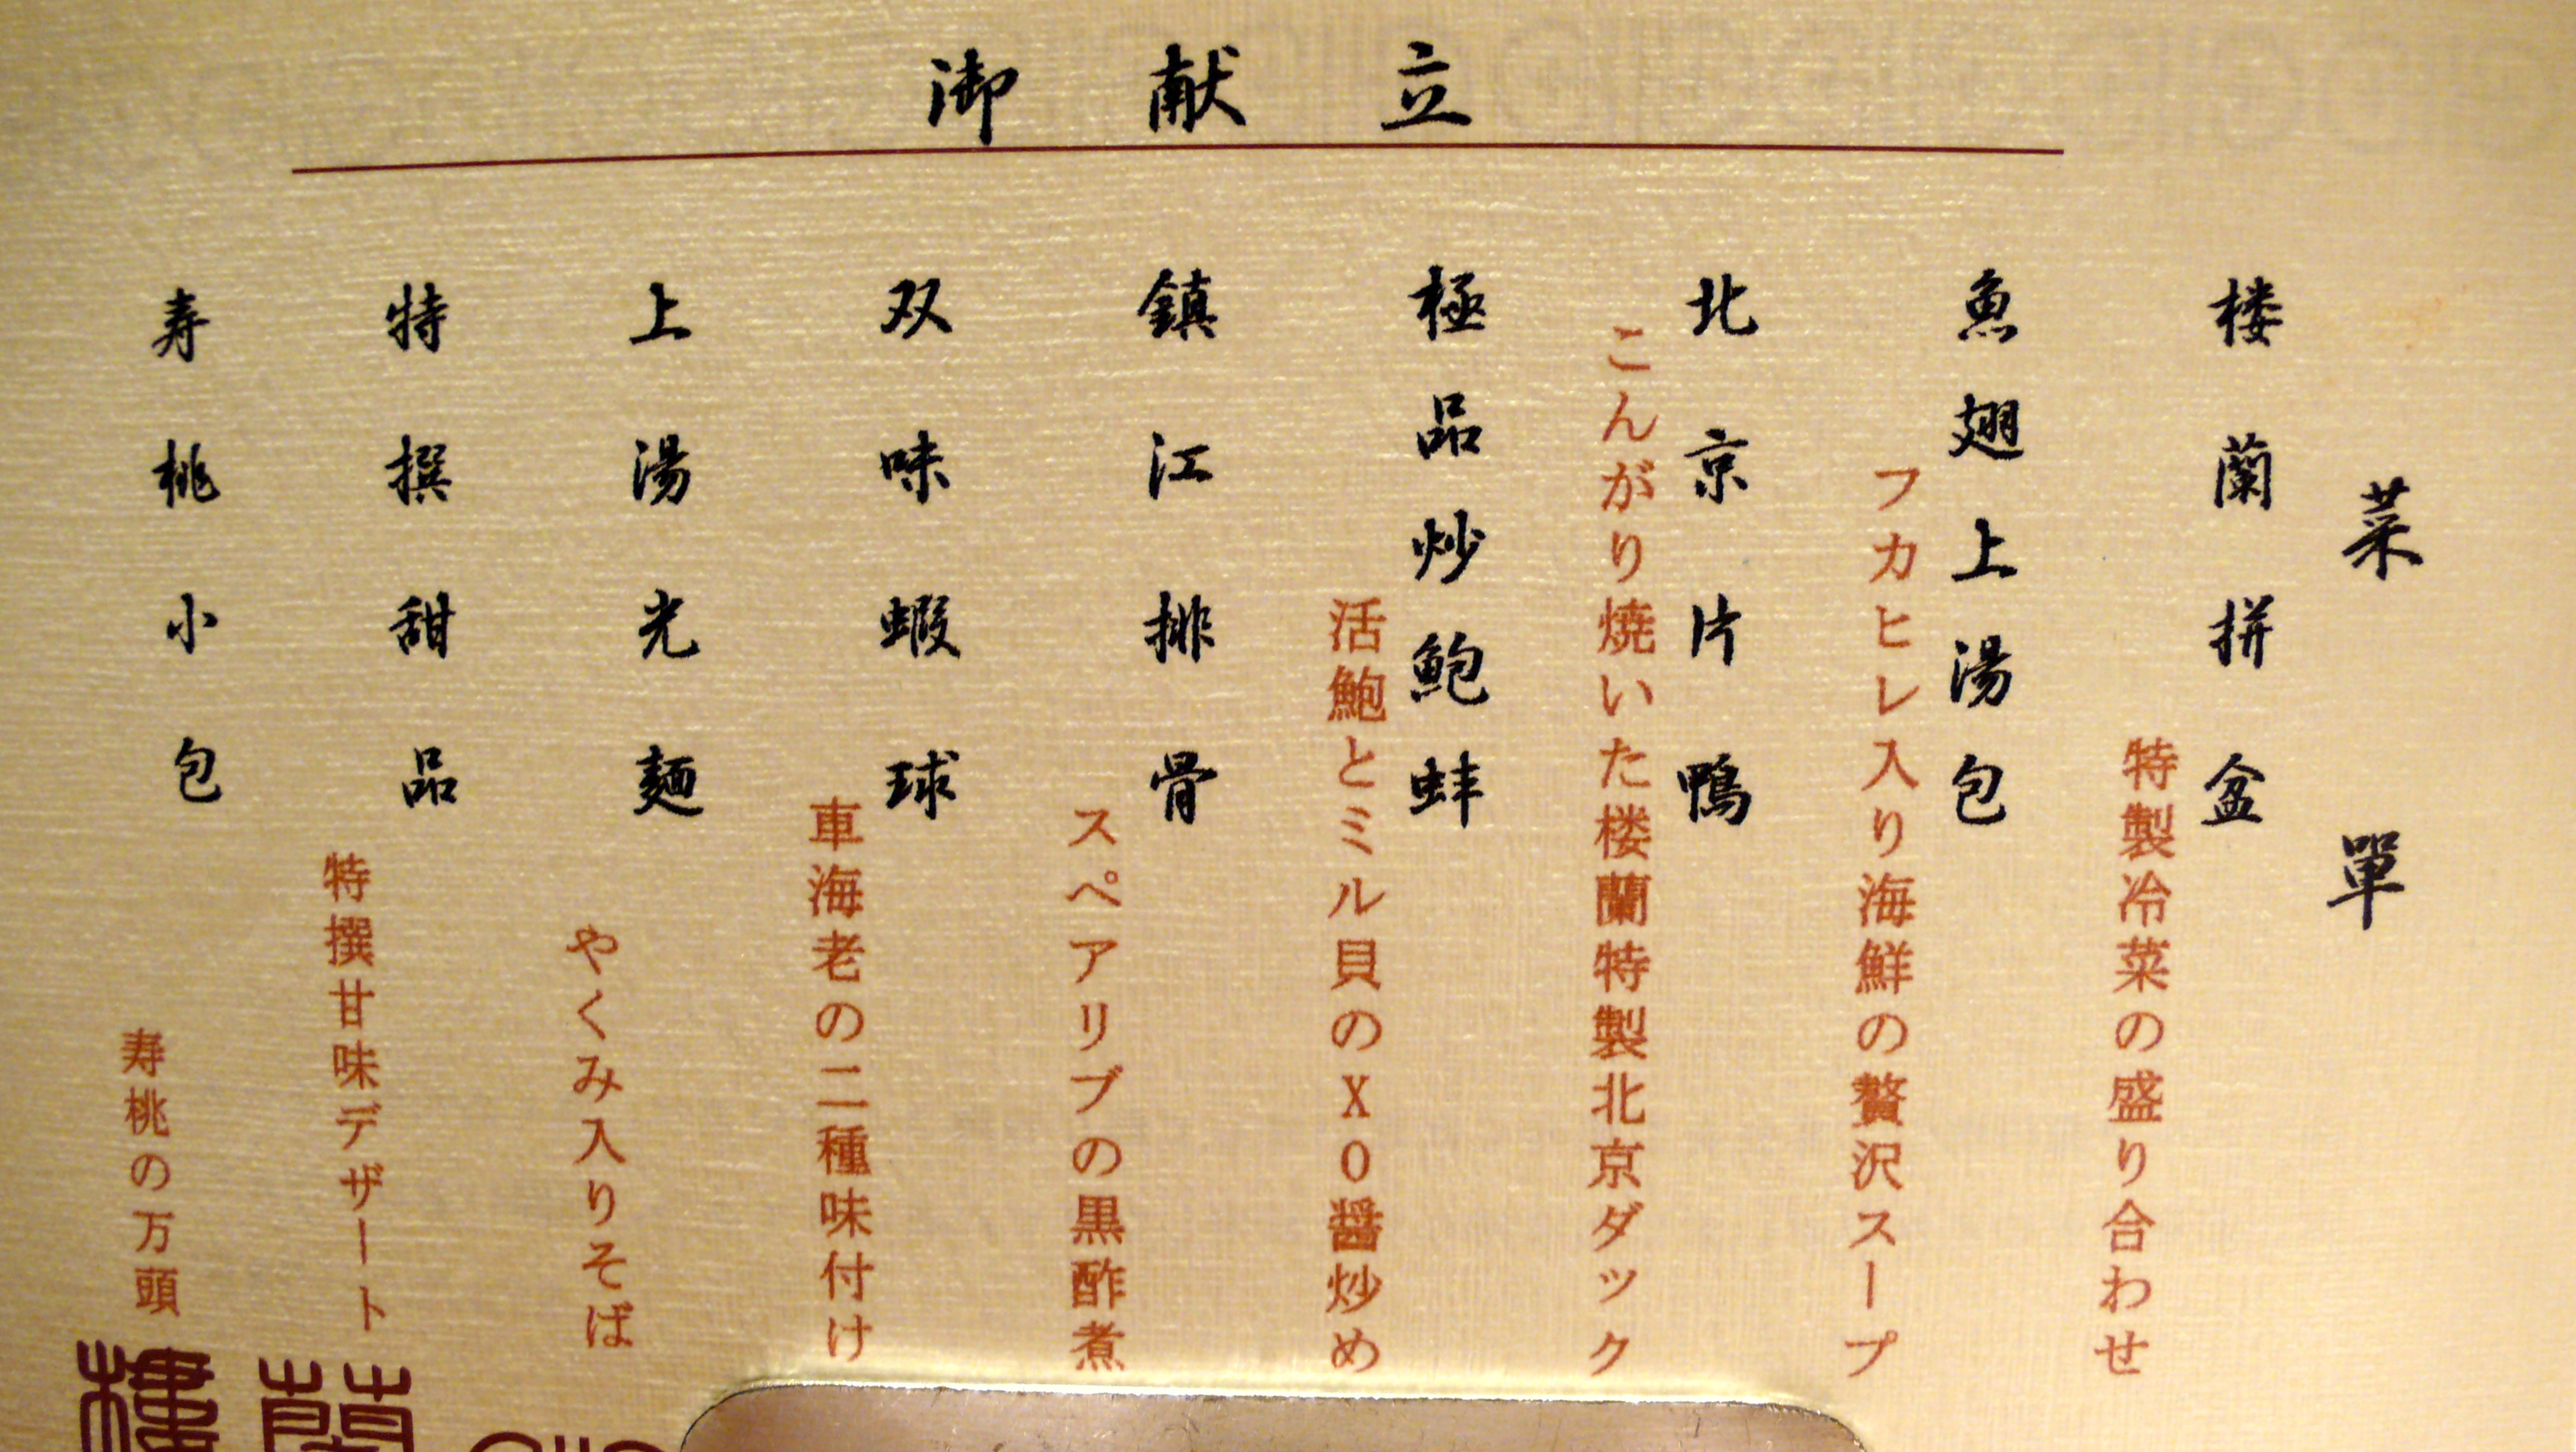 御献立
菜單
楼蘭拼盆
特製冷菜の盛り合わせ
魚翅上湯包
フカヒレ入り海鮮の贅沢スープ
北京片鴨
こんがり焼いた楼蘭特製北京ダック
極品炒鮑蚌
活鮑とミル貝のXO醤炒め
鎮江排骨
スペアリブの黒酢煮
双味蝦球
車海老の二種味付け
上湯光麺
やくみ入りそば
特撰甜品
特撰甘味デザート
寿桃小包
寿桃の万頭
樓蘭